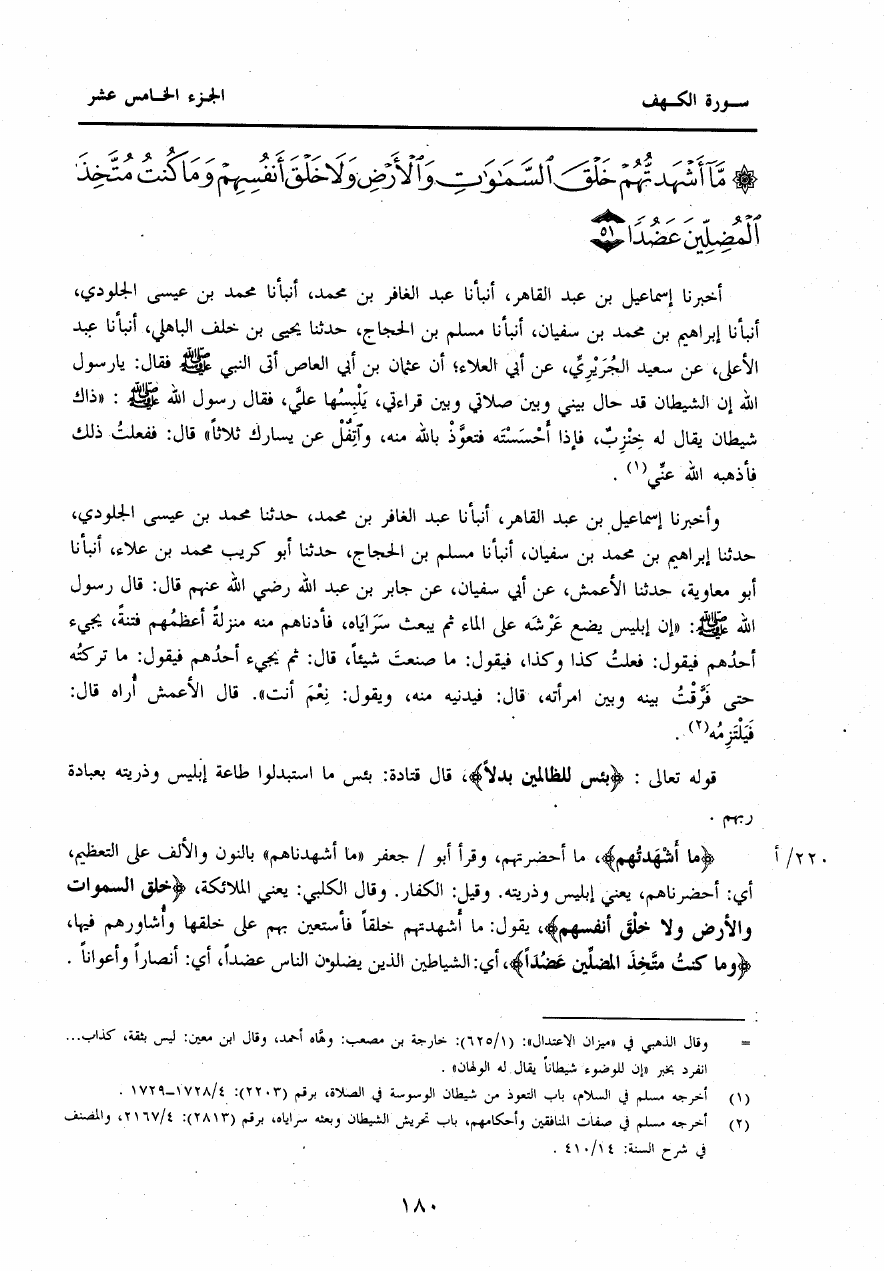 سورة الكهف
الجزء الخامس عشر
۞ مَّآ أَشْهَدتُّهُمْ خَلْقَ ٱلسَّمَٰوَٰتِ وَٱلْأَرْضِ وَلَا خَلْقَ أَنفُسِهِمْ وَمَا كُنتُ مُتَّخِذَ
ٱلْمُضِلِّينَ عَضُدًا ٥١
أخبرنا إسماعيل بن عبد القاهر، أنبأنا عبد الغافر بن محمد، أنبأنا محمد بن عيسى الجلودي،
أنبأنا إبراهيم بن محمد بن سفيان، أنبأنا مسلم بن الحجاج، حدثنا يحيى بن خلف الباهلي، أنبأنا عبد
الأعلى، عن سعيد الجُرَيْرِيِّ، عن أبي العلاء؛ أن عثمان بن أبي العاص أتى النبي ﷺ فقال: يارسول
الله إن الشيطان قد حال بيني وبين صلاتي وبين قراءتي، يَلْبِسُها عليَّ، فقال رسول الله ﷺ : «ذاك
شيطان يقال له خِنْزِبٌ، فإذا أَحْسَسْتَه فتعوَّذْ بالله منه، وٱتفُلْ عن يسارك ثلاثاً» قال: ففعلتُ ذلك
فأذهبه الله عنِّي(١) .
وأخبرنا إسماعيل بن عبد القاهر، أنبأنا عبد الغافر بن محمد، حدثنا محمد بن عيسى الجلودي،
حدثنا إبراهيم بن محمد بن سفيان، أنبأنا مسلم بن الحجاج، حدثنا أبو كريب محمد بن علاء، أنبأنا
أبو معاوية، حدثنا الأعمش، عن أبي سفيان، عن جابر بن عبد الله رضي الله عنهم قال: قال رسول
الله ﷺ: «إن إبليس يضع عَرْشَه على الماء ثم يبعث سَرَايَاه، فأدناهم منه منزلةً أعظمُهم فتنةً، يجيء
أحدُهم فيقول: فعلتُ كذا وكذا، فيقول: ما صنعتَ شيئاً، قال: ثم يجيء أحدُهم فيقول: ما تركتُه
حتى فَرَّقْتُ بينه وبين امرأته، قال: فيدنيه منه، ويقول: نِعْمَ أنت». قال الأعمش أُراه قال:
فَيَلْتَزِمُه(٢) .
قوله تعالى : ﴿بئس للظالمين بدلاً﴾، قال قتادة: بئس ما استبدلوا طاعة إبليس وذريته بعبادة
ربهم .
﴿ما أَشْهَدتُهم﴾، ما أحضرتهم، وقرأ أبو / جعفر «ما أشهدناهم» بالنون والألف على التعظيم، ٢٢٠/ أ
أي: أحضرناهم، يعني إبليس وذريته. وقيل: الكفار. وقال الكلبي: يعني الملائكة، ﴿خلق السموات
والأرض ولا خلْقَ أنفسهم﴾، يقول: ما أشهدتهم خلقاً فأستعين بهم على خلقها وأُشاورهم فيها،
﴿وما كنتُ متَّخِذَ المضلِّين عَضُدَاً﴾، أي: الشياطين الذين يضلون الناس عضداً، أي: أنصاراً وأعواناً .
= وقال الذهبي في «ميزان الاعتدال»: (٦٢٥/١): خارجة بن مصعب: وهَّاه أحمد، وقال ابن معين: ليس بثقة، كذاب...
انفرد بخبر «إن للوضوء شيطاناً يقال له الولهان» .
(١) أخرجه مسلم في السلام، باب التعوذ من شيطان الوسوسة في الصلاة، برقم (٢٢٠٣): ١٧٢٨/٤–١٧٢٩ .
(٢) أخرجه مسلم في صفات المنافقين وأحكامهم، باب تحريش الشيطان وبعثه سراياه، برقم (٢٨١٣): ٢١٦٧/٤، والمصنف
في شرح السنة: ٤١٠/١٤ .
١٨٠